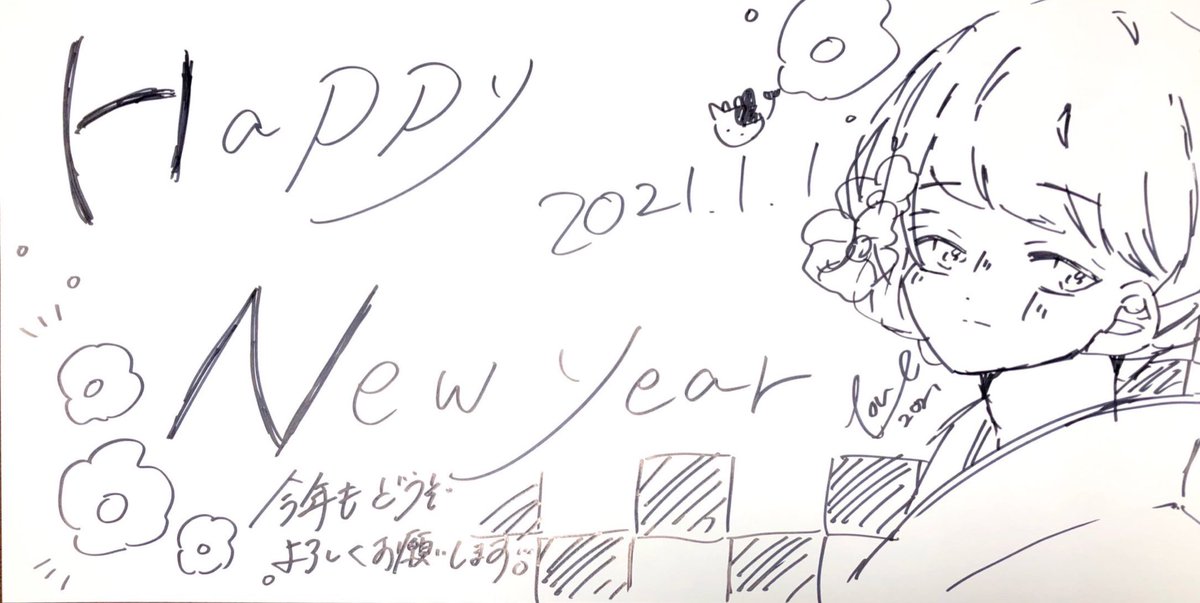 Happy
2021.1.1
New year
love
2021
今年もどうぞ
よろしくお願いします。